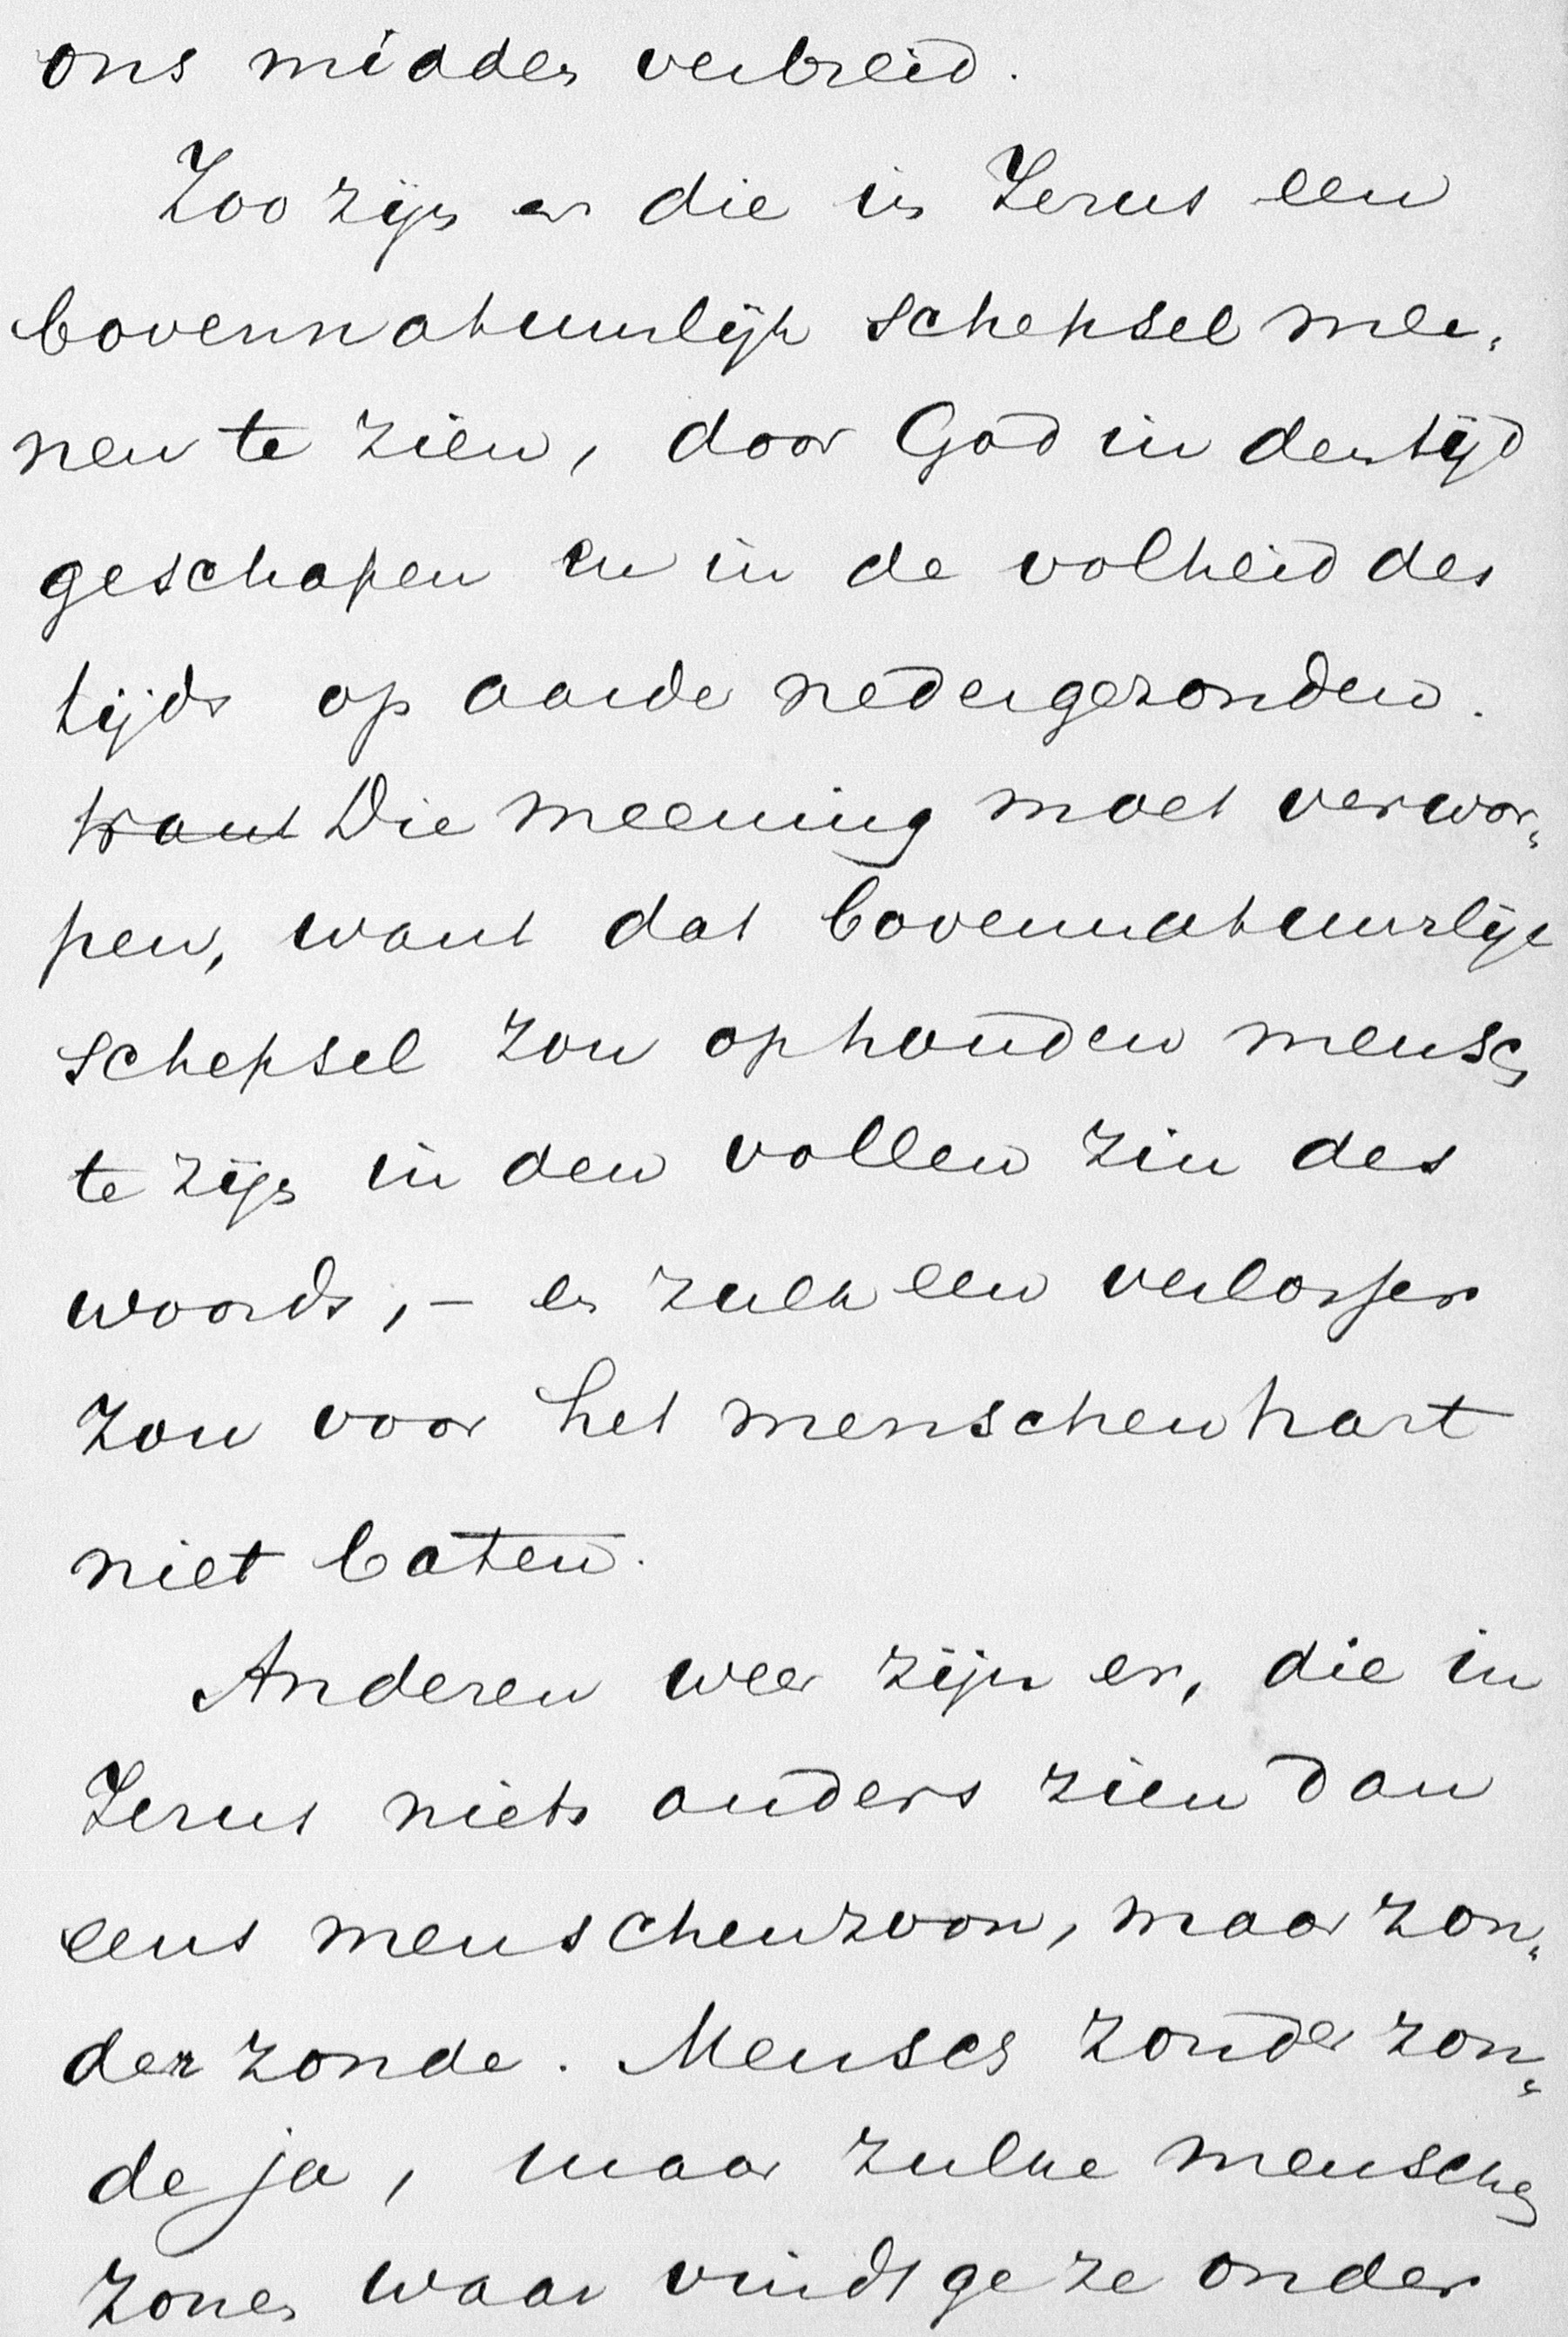 ons midden verbreid.
Zoo zijn er die in Jezus een
bovennatuurlijk schepsel mee„
nen te zien, door God in den tijd
geschapen en in de volheid des
tijds op aarde nedergezonden.
Want Die meening moet verwor„
pen, want dat bovennatuurlijk
schepsel zou ophouden mensch
te zijn in den vollen zin des
woords, – en zulk een verlosser
zou voor het menschenhart
niet baten.
Anderen weer zijn er, die in
Jezus niets anders zien dan
eens menschenzoon, maar zon„
der zonde. Mensch zonder zon„
de ja, maar zulke menschen
zonen waar vindt ge ze onder